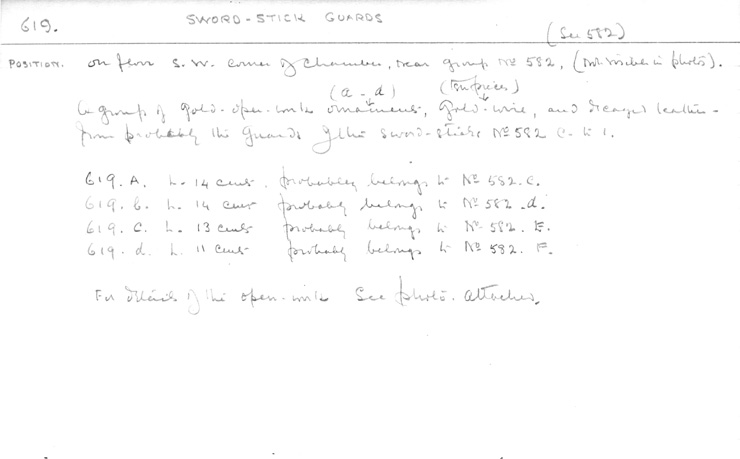 619.
SWORD-STICK GUARDS
(See 582)
POSITION. on floor S.W. corner of Chamber, near group Nº 582, (not visible in photo).
(a - d) (Two pieces)
A group of gold-open-work ornaments, gold-wire, and decayed leather -
from probably the guards of the sword-sticks Nº 582 C. to
619. A. L. 14 cents. probably belongs to Nº 582. C.
619. b. L. 14 cents probably belongs to Nº 582. d.
619. C. L. 13 cents probably belongs to Nº 582. E.
619. d. L. 11 cents probably belongs to Nº 582. F.
For details of the open-work See photo. attached.